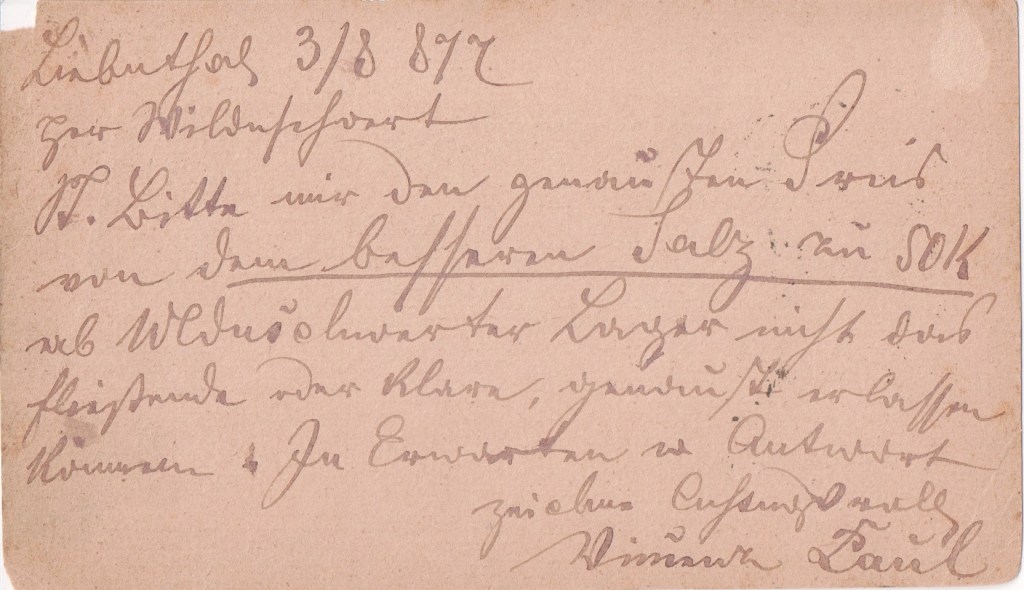 Liebnthal 3/8 877
per Wildnschwert
Bitte mir den genausten Preis
von dem besseren Salz zu 50 K
ab Lager nicht das
fließende oder klare, genaust erlassen
können. In Erwarten Antwort
zeichne Achtungsvoll
Paul